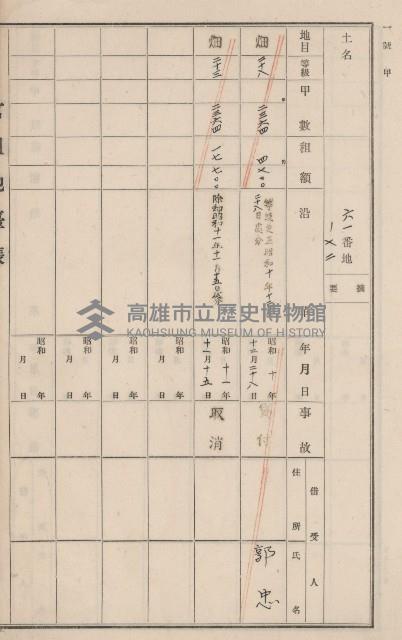 一號甲
土名
六一番地
一×二
摘要
地目
等級
甲數
租額
沿革
年月日
事故
借受人
住所
氏名
畑
二八
二三六四
四七〇〇
等級更正昭和十年十二月
二十八日處分
昭和十年
十二月二十八日
貸付
郭忠
畑
二三
二三六四
一七七〇〇
除却昭和十一年十一月十五日
昭和十一年
十一月十五日
取消
昭和年
月日
昭和年
月日
昭和年
月日
昭和年
月日
高雄市立歷史博物館
KAOHSIUNG MUSEUM OF HISTORY